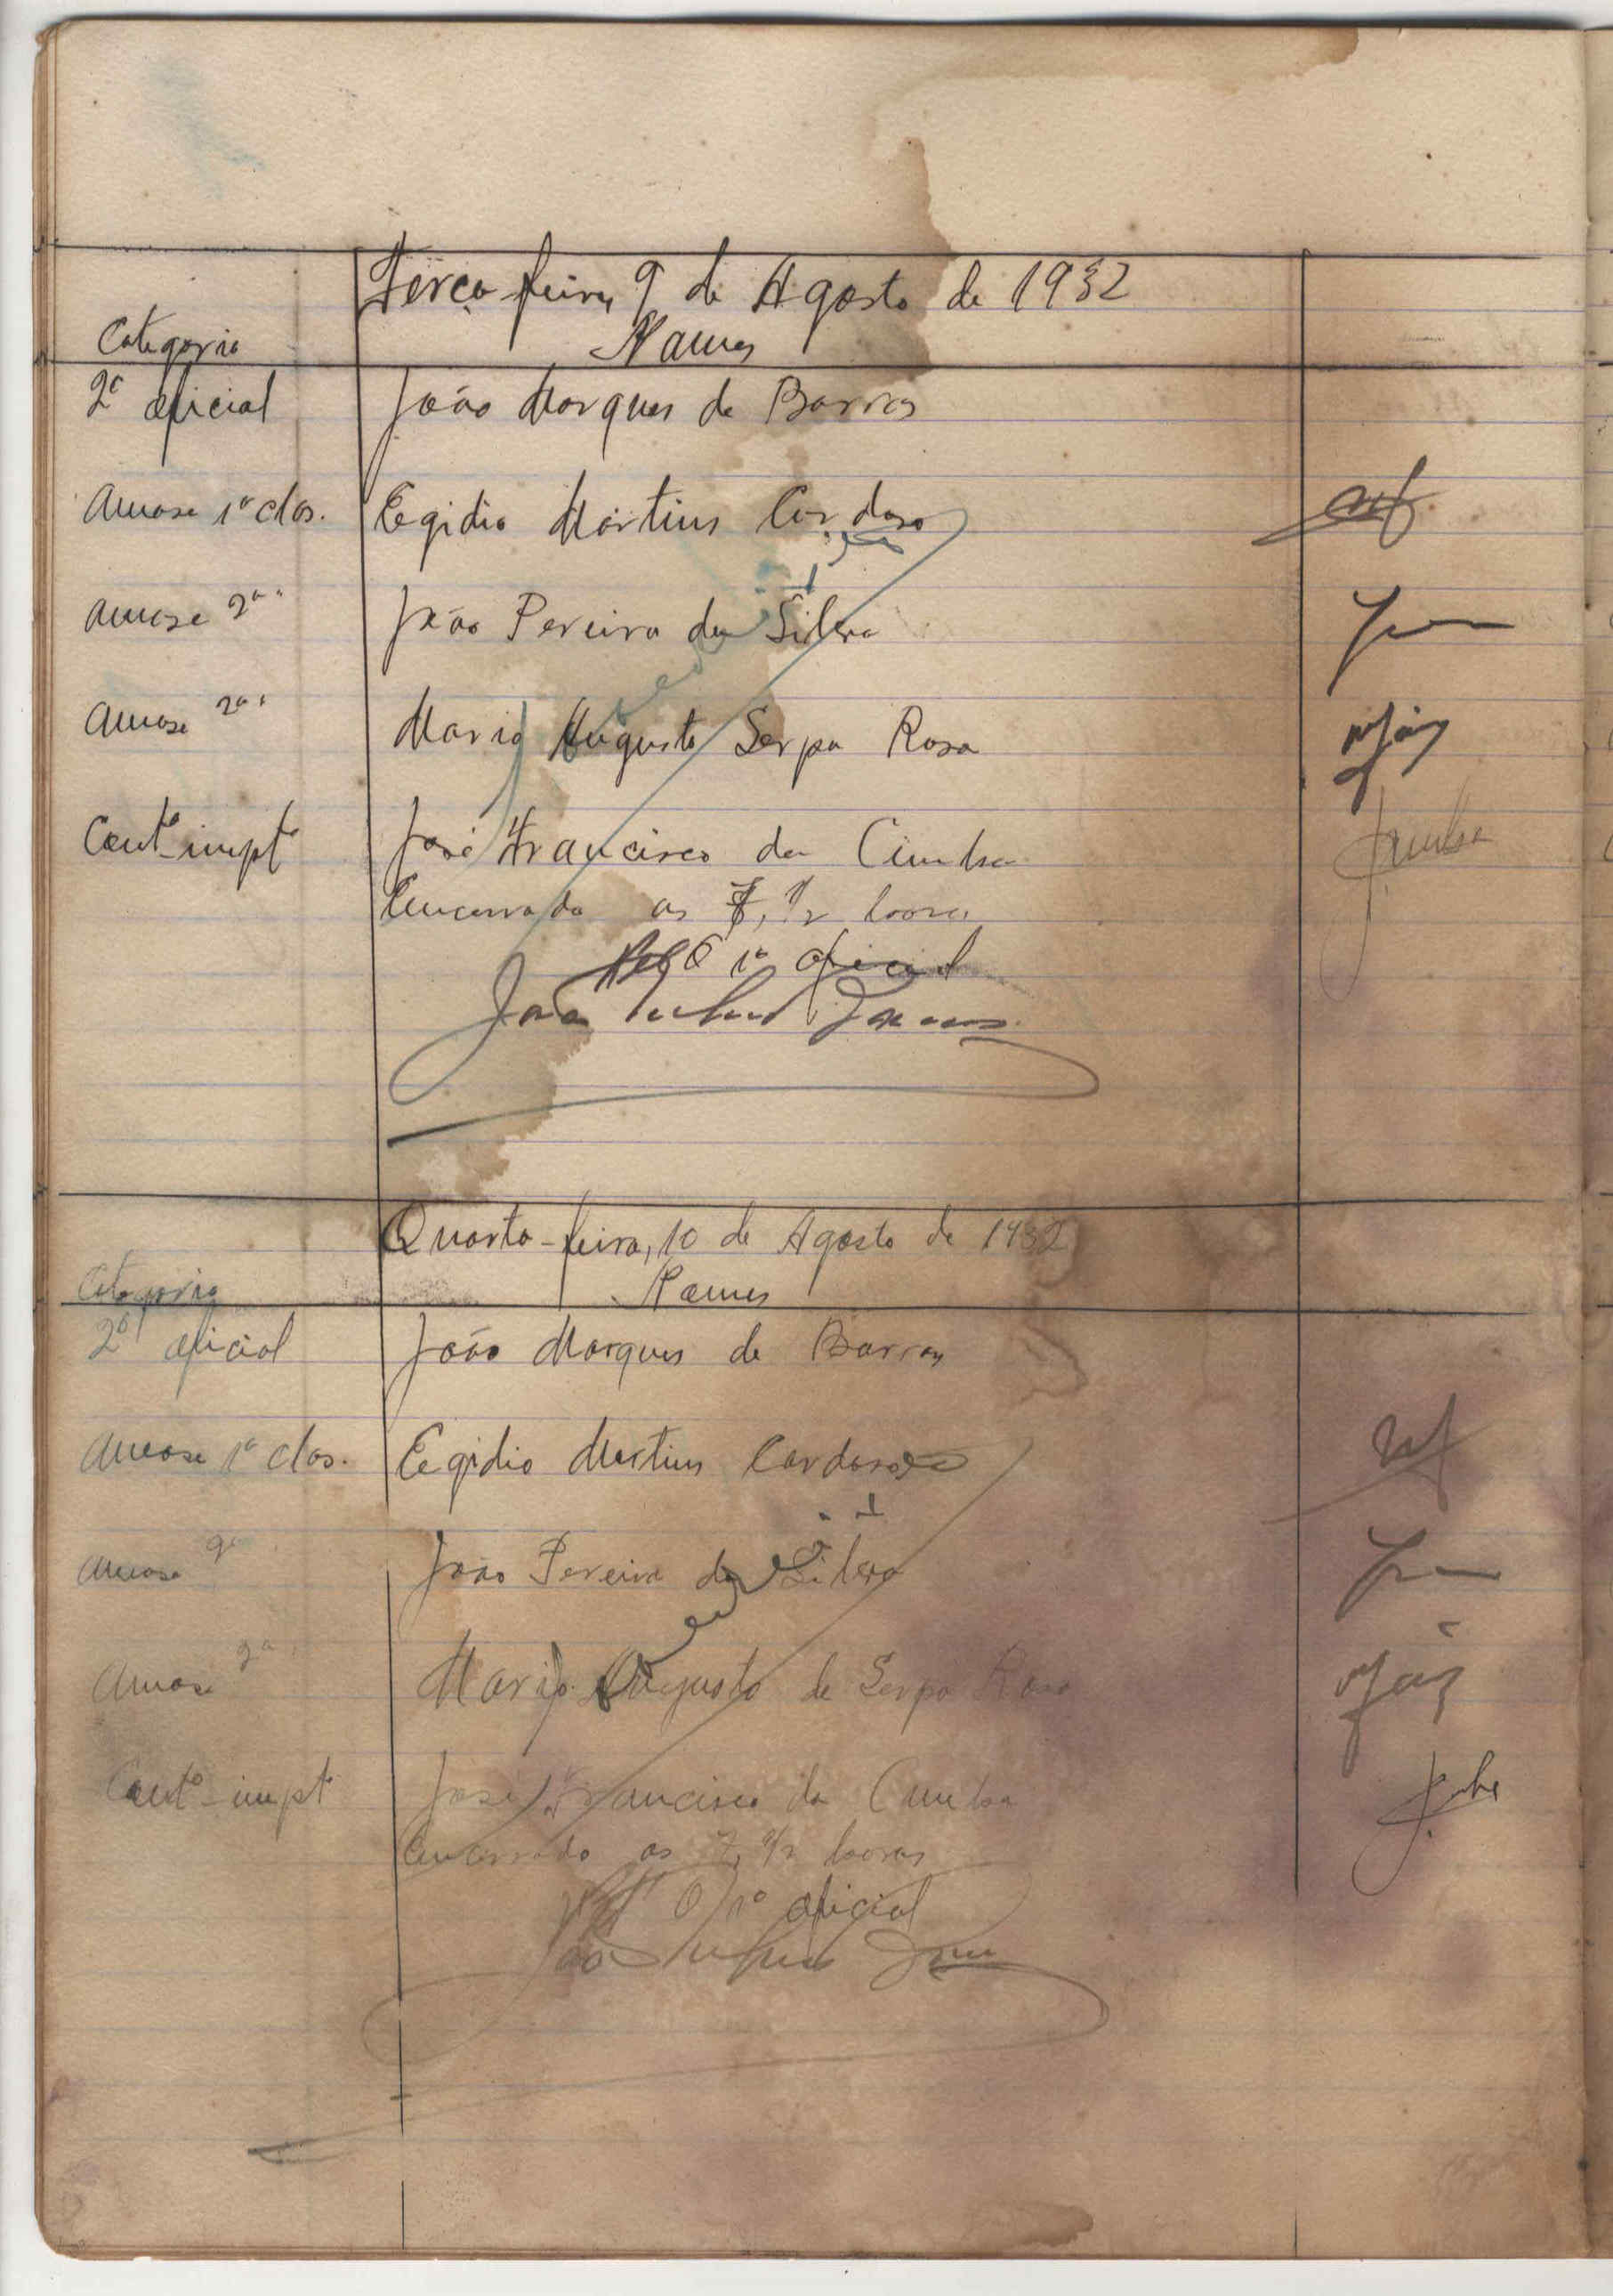 Terça-feira, 9 de Agosto de 1932
Categoria Nomes
2º oficial João Marques de Barros
1ª clas. Egidio Martins Cardoso
2ª " João Pereira da Silva
2ª " Mario Augusto Serpa Rosa
Contº impt José Francisco da Cunha
Encerrado as 7, 1/2 horas
O 1º oficial
João
Quarta-feira, 10 de Agosto de 1932
Categoria Nomes
2º oficial João Marques de Barros
1ª clas. Egidio Martins Cardoso
2ª João Pereira da Silva
2ª Mario Augusto de Serpa Rosa
Contº impt José Francisco da Cunha
Encerrado as 7, 1/2 horas
O 1º oficial
João